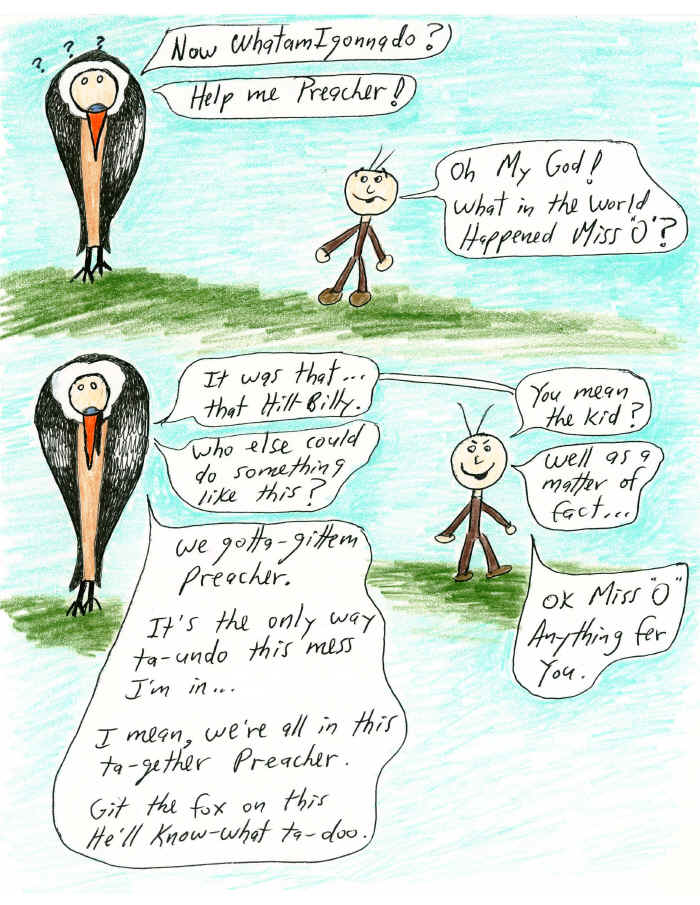 ? ? ?
Now WhatamIgonnado?
Help me Preacher!
Oh My God!
What in the World
Happened Miss "O"?
It was that...
that Hill-Billy.
You mean
the kid?
Who else could
do something
like this?
Well as a
matter of
fact...
We gotta-gittem
Preacher.
It's the only way
ta-undo this mess
I'm in...
I mean, we're all in this
ta-gether Preacher.
Git the fox on this
He'll Know-what ta-doo.
OK Miss "O"
Anything fer
You.